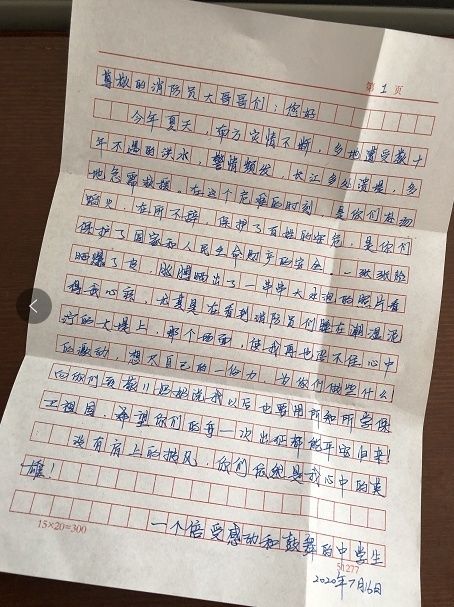 第 1 页
尊敬的消防员大哥哥们：您好
今年夏天，南方灾情不断，多地遭受数十
年不遇的洪水，警情频发，长江多处溃堤，多
地急需救援。在这个危难的时刻，是你们赴汤
蹈火，在所不辞，保护了百姓的安危，是你们
保护了国家和人民生命财产的安全。一张张脸
晒爆了皮，胳膊晒出了一串串大水泡的照片看
得我心疼，尤其是在看到消防员们睡在潮湿泥
泞的大堤上，那个画面，使我再也憋不住心中
的激动，想尽自己的一份力，为你们做些什么
向你们致敬！！我以后也要用所知所学保
卫祖国，希望你们的每一次出征都能平安归来！
没有肩上的披风，你们依然是我心中的英
雄！
一个倍受感动和鼓舞的中学生
15×20=300
51277
2020年7月16日